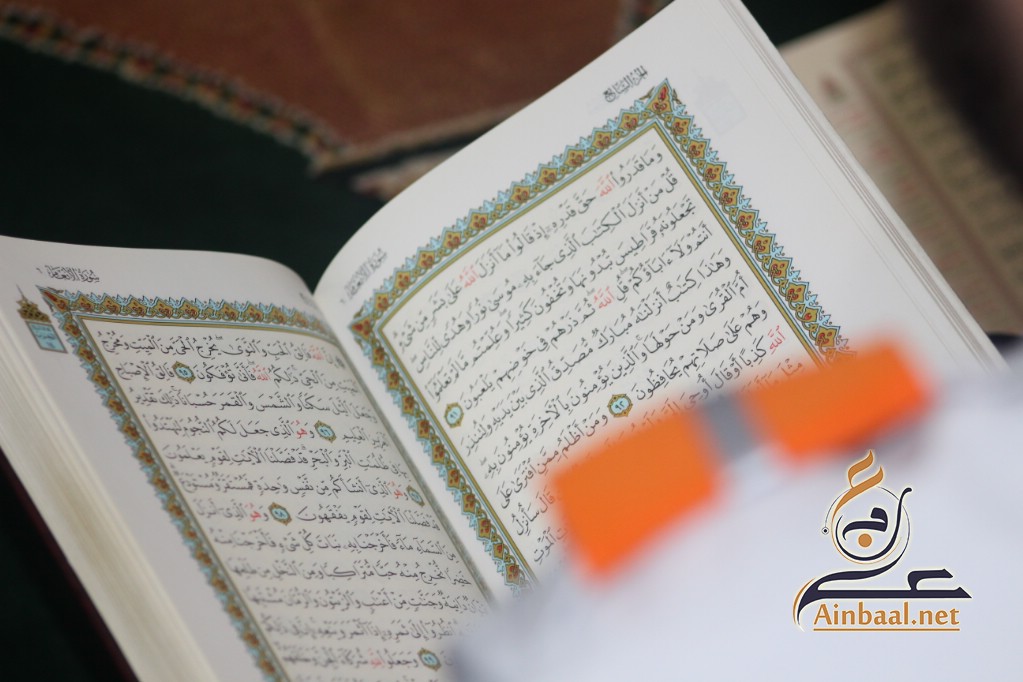 الجزء السابع
سورة الأنعام
وَمَا قَدَرُوا اللَّهَ حَقَّ قَدْرِهِ إِذْ قَالُوا مَا أَنزَلَ اللَّهُ عَلَىٰ بَشَرٍ مِّن شَيْءٍ
قُلْ مَنْ أَنزَلَ الْكِتَٰبَ الَّذِي جَاءَ بِهِ مُوسَىٰ نُورًا وَهُدًى لِّلنَّاسِ
تَجْعَلُونَهُ قَرَاطِيسَ تُبْدُونَهَا وَتُخْفُونَ كَثِيرًا وَعُلِّمْتُم مَّا لَمْ تَعْلَمُوا
أَنتُمْ وَلَا ءَابَاؤُكُمْ قُلِ اللَّهُ ثُمَّ ذَرْهُمْ فِي خَوْضِهِمْ يَلْعَبُونَ ٩١
وَهَٰذَا كِتَٰبٌ أَنزَلْنَٰهُ مُبَارَكٌ مُّصَدِّقُ الَّذِي بَيْنَ يَدَيْهِ وَلِتُنذِرَ
أُمَّ الْقُرَىٰ وَمَنْ حَوْلَهَا وَالَّذِينَ يُؤْمِنُونَ بِالْءَاخِرَةِ يُؤْمِنُونَ بِهِ
وَهُمْ عَلَىٰ صَلَاتِهِمْ يُحَافِظُونَ ٩٢ وَمَنْ أَظْلَمُ مِمَّنِ افْتَرَىٰ عَلَى
اللَّهِ كَذِبًا أَوْ قَالَ أُوحِيَ
قَالَ سَأُنزِلُ
الْمَوْتِ
سورة الأنعام ٦
اللَّهَ فَالِقُ الْحَبِّ وَالنَّوَىٰ يُخْرِجُ الْحَيَّ مِنَ الْمَيِّتِ وَمُخْرِجُ
الْمَيِّتِ مِنَ الْحَيِّ ذَٰلِكُمُ اللَّهُ فَأَنَّىٰ تُؤْفَكُونَ ٩٥ فَالِقُ الْإِصْبَاحِ
وَجَعَلَ الَّيْلَ سَكَنًا وَالشَّمْسَ وَالْقَمَرَ حُسْبَانًا ذَٰلِكَ تَقْدِيرُ
الْعَزِيزِ الْعَلِيمِ ٩٦ وَهُوَ الَّذِي جَعَلَ لَكُمُ النُّجُومَ لِتَهْتَدُوا
ظُلُمَٰتِ الْبَرِّ وَالْبَحْرِ قَدْ فَصَّلْنَا الْءَايَٰتِ لِقَوْمٍ يَعْلَمُونَ
وَهُوَ الَّذِي أَنشَأَكُم مِّن نَّفْسٍ وَٰحِدَةٍ فَمُسْتَقَرٌّ وَمُسْتَوْدَعٌ
فَصَّلْنَا الْءَايَٰتِ لِقَوْمٍ يَفْقَهُونَ ٩٨ وَهُوَ الَّذِي أَنزَلَ
السَّمَاءِ مَاءً فَأَخْرَجْنَا بِهِ نَبَاتَ كُلِّ شَيْءٍ فَأَخْرَجْنَا مِنْهُ
خَضِرًا نُّخْرِجُ مِنْهُ حَبًّا مُّتَرَاكِبًا وَمِنَ النَّخْلِ مِن طَلْعِهَا
دَانِيَةٌ وَجَنَّٰتٍ مِّنْ أَعْنَابٍ وَالزَّيْتُونَ وَالرُّمَّانَ
انظُرُوا إِلَىٰ ثَمَرِهِ إِذَا أَثْمَرَ وَيَنْعِهِ
٩٩ وَجَعَلُوا لِلَّهِ شُرَكَاءَ الْجِنَّ وَخَلَقَهُمْ
عين بال
Ainbaal.net